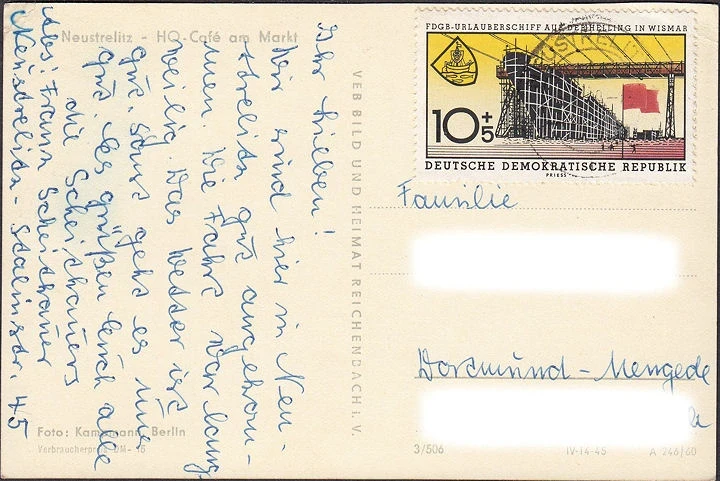 Neustrelitz - HO-Café am Markt
Ihr Lieben!
Wir sind hier in Neu-
strelitz gut angekom-
men. Die Fahrt war lang-
weilig. Das Wetter ist
gut, sonst geht es uns
gut. Es grüßen Euch alle
die Scheithauers
Abs: Franz Scheithauer
Neustrelitz - Stalinstr. 45
Foto: Kampmann, Berlin
Verbraucherpreis DM- 16
VEB BILD UND HEIMAT REICHENBACH i. V.
FDGB-URLAUBERSCHIFF AUF DER HELLING IN WISMAR
10+5
DEUTSCHE DEMOKRATISCHE REPUBLIK
PRIESS
Familie
Dortmund - Mengede
3/506 IV-14-45 A 246/60